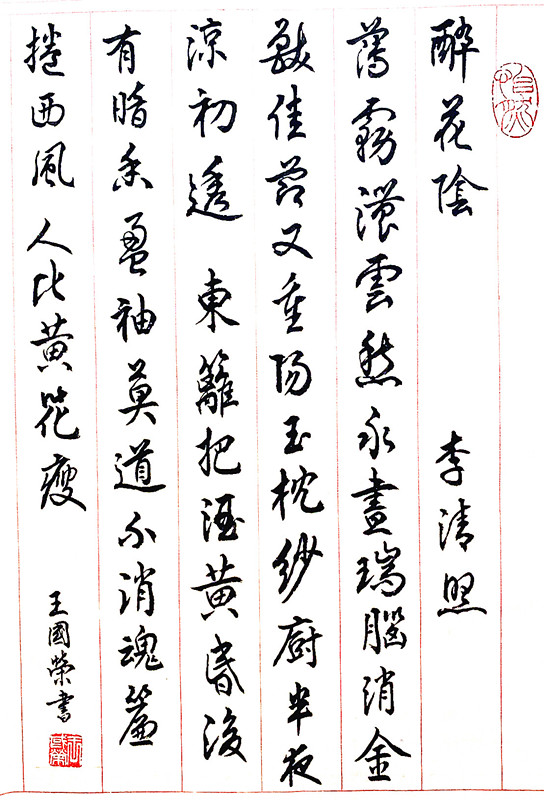 醉花陰 李清照
薄霧濃雲愁永晝瑞腦消金
獸佳節又重陽玉枕紗廚半夜
涼初透 東籬把酒黃昏後
有暗香盈袖莫道不消魂簾
捲西風人比黃花瘦
王國榮書